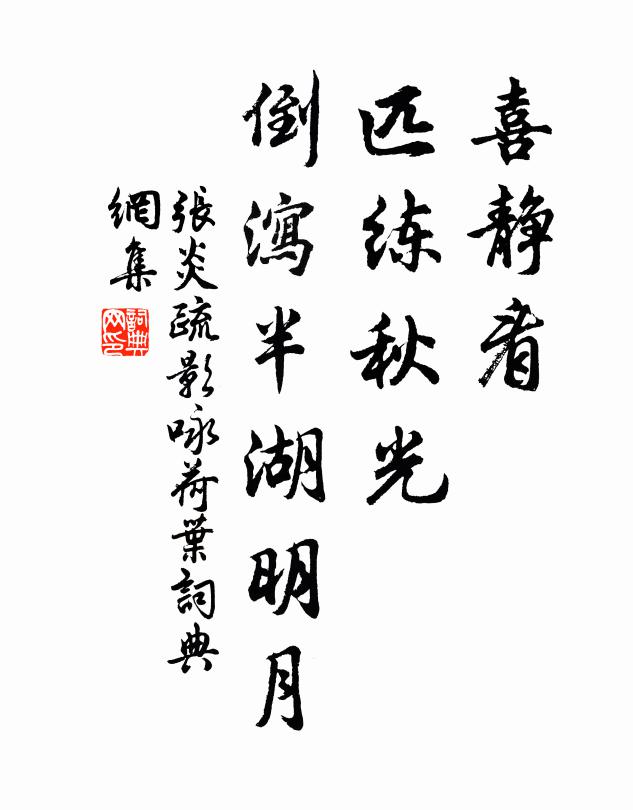 喜静看
匹练秋光
倒瀉半湖明月
張炎疏影咏荷葉詞典
網集
詞典
网印